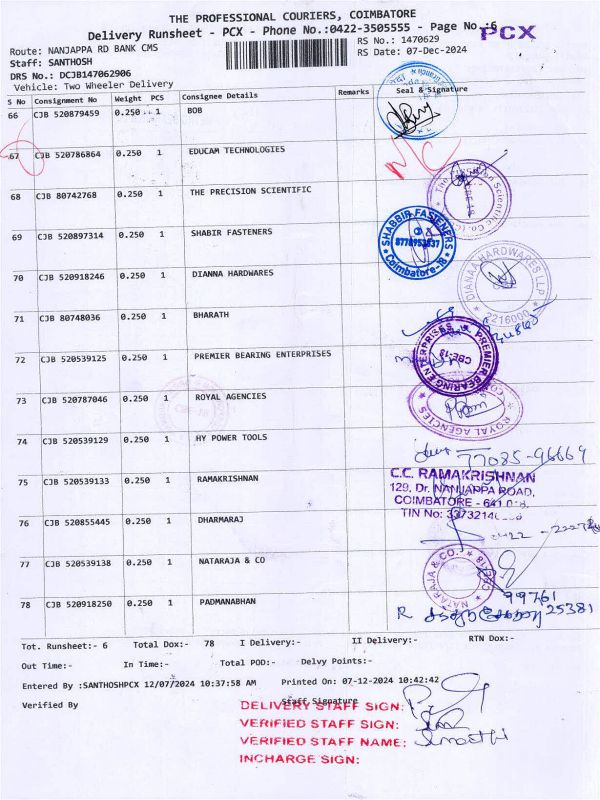 THE PROFESSIONAL COURIERS, COIMBATORE
Delivery Runsheet - PCX - Phone No.:0422-3505555 - Page No.:6
PCX
Route: NANJAPPA RD BANK CMS
RS No.: 1470629
Staff: SANTHOSH
RS Date: 07-Dec-2024
DRS No.: DCJB147062906
Vehicle: Two Wheeler Delivery
S No Consignment No Weight PCS Consignee Details Remarks Seal & Signature
66 CJB 520879459 0.250 1 BOB
67 CJB 520786864 0.250 1 EDUCAM TECHNOLOGIES
N/C
68 CJB 80742768 0.250 1 THE PRECISION SCIENTIFIC
69 CJB 520897314 0.250 1 SHABIR FASTENERS
SHABBIR FASTENERS
8778953837
Coimbatore-18
70 CJB 520918246 0.250 1 DIANNA HARDWARES
DIANA HARDWARES LLP
2216000
71 CJB 80748036 0.250 1 BHARATH
72 CJB 520539125 0.250 1 PREMIER BEARING ENTERPRISES
PREMIER BEARING ENTERPRISES
CBE-18
73 CJB 520787046 0.250 1 ROYAL AGENCIES
ROYAL AGENCIES
74 CJB 520539129 0.250 1 HY POWER TOOLS
77085-96669
75 CJB 520539133 0.250 1 RAMAKRISHNAN
C.C. RAMAKRISHNAN
129, Dr. NANJAPPA ROAD,
COIMBATORE - 641 018.
TIN No:
76 CJB 520855445 0.250 1 DHARMARAJ
77 CJB 520539138 0.250 1 NATARAJA & CO
NATARAJA & CO.
78 CJB 520918250 0.250 1 PADMANABHAN
99761
25381
Tot. Runsheet:- 6 Total Dox:- 78 I Delivery:- II Delivery:- RTN Dox:-
Out Time:- In Time:- Total POD:- Delvy Points:-
Entered By :SANTHOSHPCX 12/07/2024 10:37:58 AM Printed On: 07-12-2024 10:42:42
Verified By Staff Signature
DELIVERY STAFF SIGN:
VERIFIED STAFF SIGN:
VERIFIED STAFF NAME:
INCHARGE SIGN: